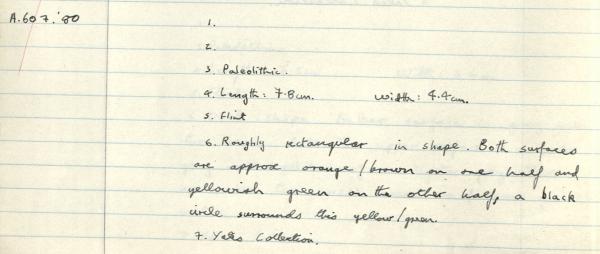 A.607.'80
1.
2.
3. Paleolithic.
4. Length: 7.8cm. Width: 4.4cm.
5. Flint
6. Roughly rectangular in shape. Both surfaces
are approx orange/brown on one half and
yellowish green on the other half, a black
circle surrounds this yellow/green.
7. Collection.